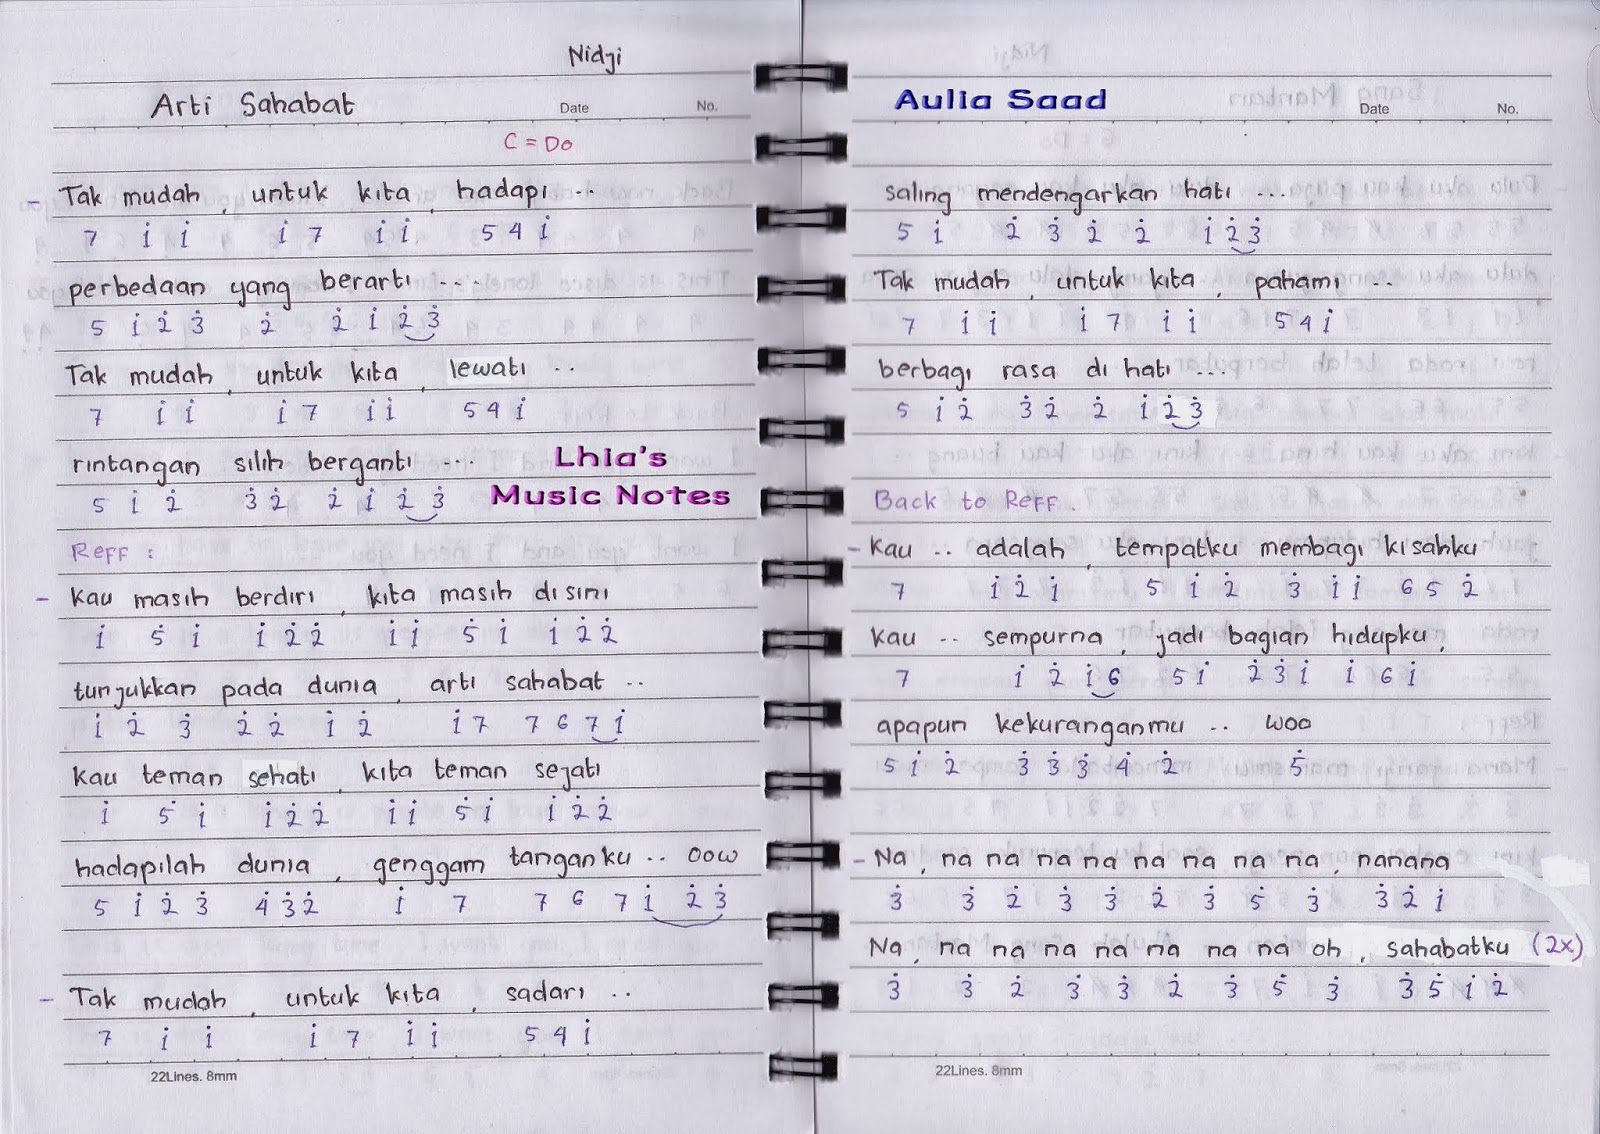 Nidji
Arti Sahabat
Date No.
C = Do
- Tak mudah , untuk kita , hadapi ...
7 1̇ 1̇ 1̇ 7 1̇ 1̇ 5 4 1̇
perbedaan yang berarti ....
5 1̇ 2̇ 3̇ 2̇ 2̇ 1̇ 2̇ 3̇
Tak mudah , untuk kita , lewati ..
7 1̇ 1̇ 1̇ 7 1̇ 1̇ 5 4 1̇
rintangan silih berganti ....
5 1̇ 2̇ 3̇ 2̇ 2̇ 1̇ 2̇ 3̇
Lhia's
Music Notes
Reff :
- Kau masih berdiri , kita masih disini
1̇ 5̇ 1̇ 1̇ 2̇ 2̇ 1̇ 1̇ 5̇ 1̇ 1̇ 2̇ 2̇
tunjukkan pada dunia , arti sahabat ..
1̇ 2̇ 3̇ 2̇ 2̇ 1̇ 2̇ 1̇ 7 7 6 7 1̇
Kau teman sehati , kita teman sejati
1̇ 5̇ 1̇ 1̇ 2̇ 2̇ 1̇ 1̇ 5̇ 1̇ 1̇ 2̇ 2̇
hadapilah dunia , genggam tanganku .. oow
5 1̇ 2̇ 3̇ 4̇ 3̇ 2̇ 1̇ 7 7 6 7 1̇ 2̇ 3̇
- Tak mudah , untuk kita , sadari ..
7 1̇ 1̇ 1̇ 7 1̇ 1̇ 5 4 1̇
22Lines. 8mm
Aulia Saad
Date No.
saling mendengarkan hati ...
5 1̇ 2̇ 3̇ 2̇ 2̇ 1̇ 2̇ 3̇
Tak mudah , untuk kita , pahami ..
7 1̇ 1̇ 1̇ 7 1̇ 1̇ 5 4 1̇
berbagi rasa di hati ...
5 1̇ 2̇ 3̇ 2̇ 2̇ 1̇ 2̇ 3̇
Back to Reff .
- Kau .. adalah , tempatku membagi kisahku
7 1̇ 2̇ 1̇ 5 1̇ 2̇ 3̇ 1̇ 1̇ 6 5 2̇
Kau .. sempurna , jadi bagian hidupku ,
7 1̇ 2̇ 1̇ 6 5 1̇ 2̇ 3̇ 1̇ 1̇ 6 1̇
apapun kekuranganmu .. woo
5 1̇ 2̇ 3̇ 3̇ 3̇ 4̇ 2̇ 5̇
- Na , na na na na na na na na , nanana
3̇ 3̇ 2̇ 3̇ 3̇ 2̇ 3̇ 5̇ 3̇ 3̇ 2̇ 1̇
Na , na na na na na na na oh , sahabatku (2x)
3̇ 3̇ 2̇ 3̇ 3̇ 2̇ 3̇ 5̇ 3̇ 3̇ 5̇ 1̇ 2̇
22Lines. 8mm